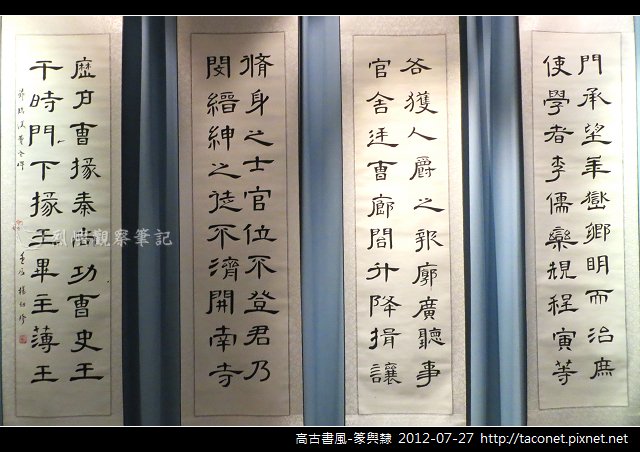 門承望華嶽鄉明而治庶
使學者李儒欒規程寅等
各獲人爵之報廓廣聽事
官舍廷曹廊閤升降揖讓
脩身之士官位不登君乃
閔縉紳之徒不濟開南寺
歷戶曹掾秦尚功曹史王
于時門下掾王畢主薄王
烈嶼觀察筆記
高古書風-篆與隸 2012-07-27 http://taconet.pixnet.net